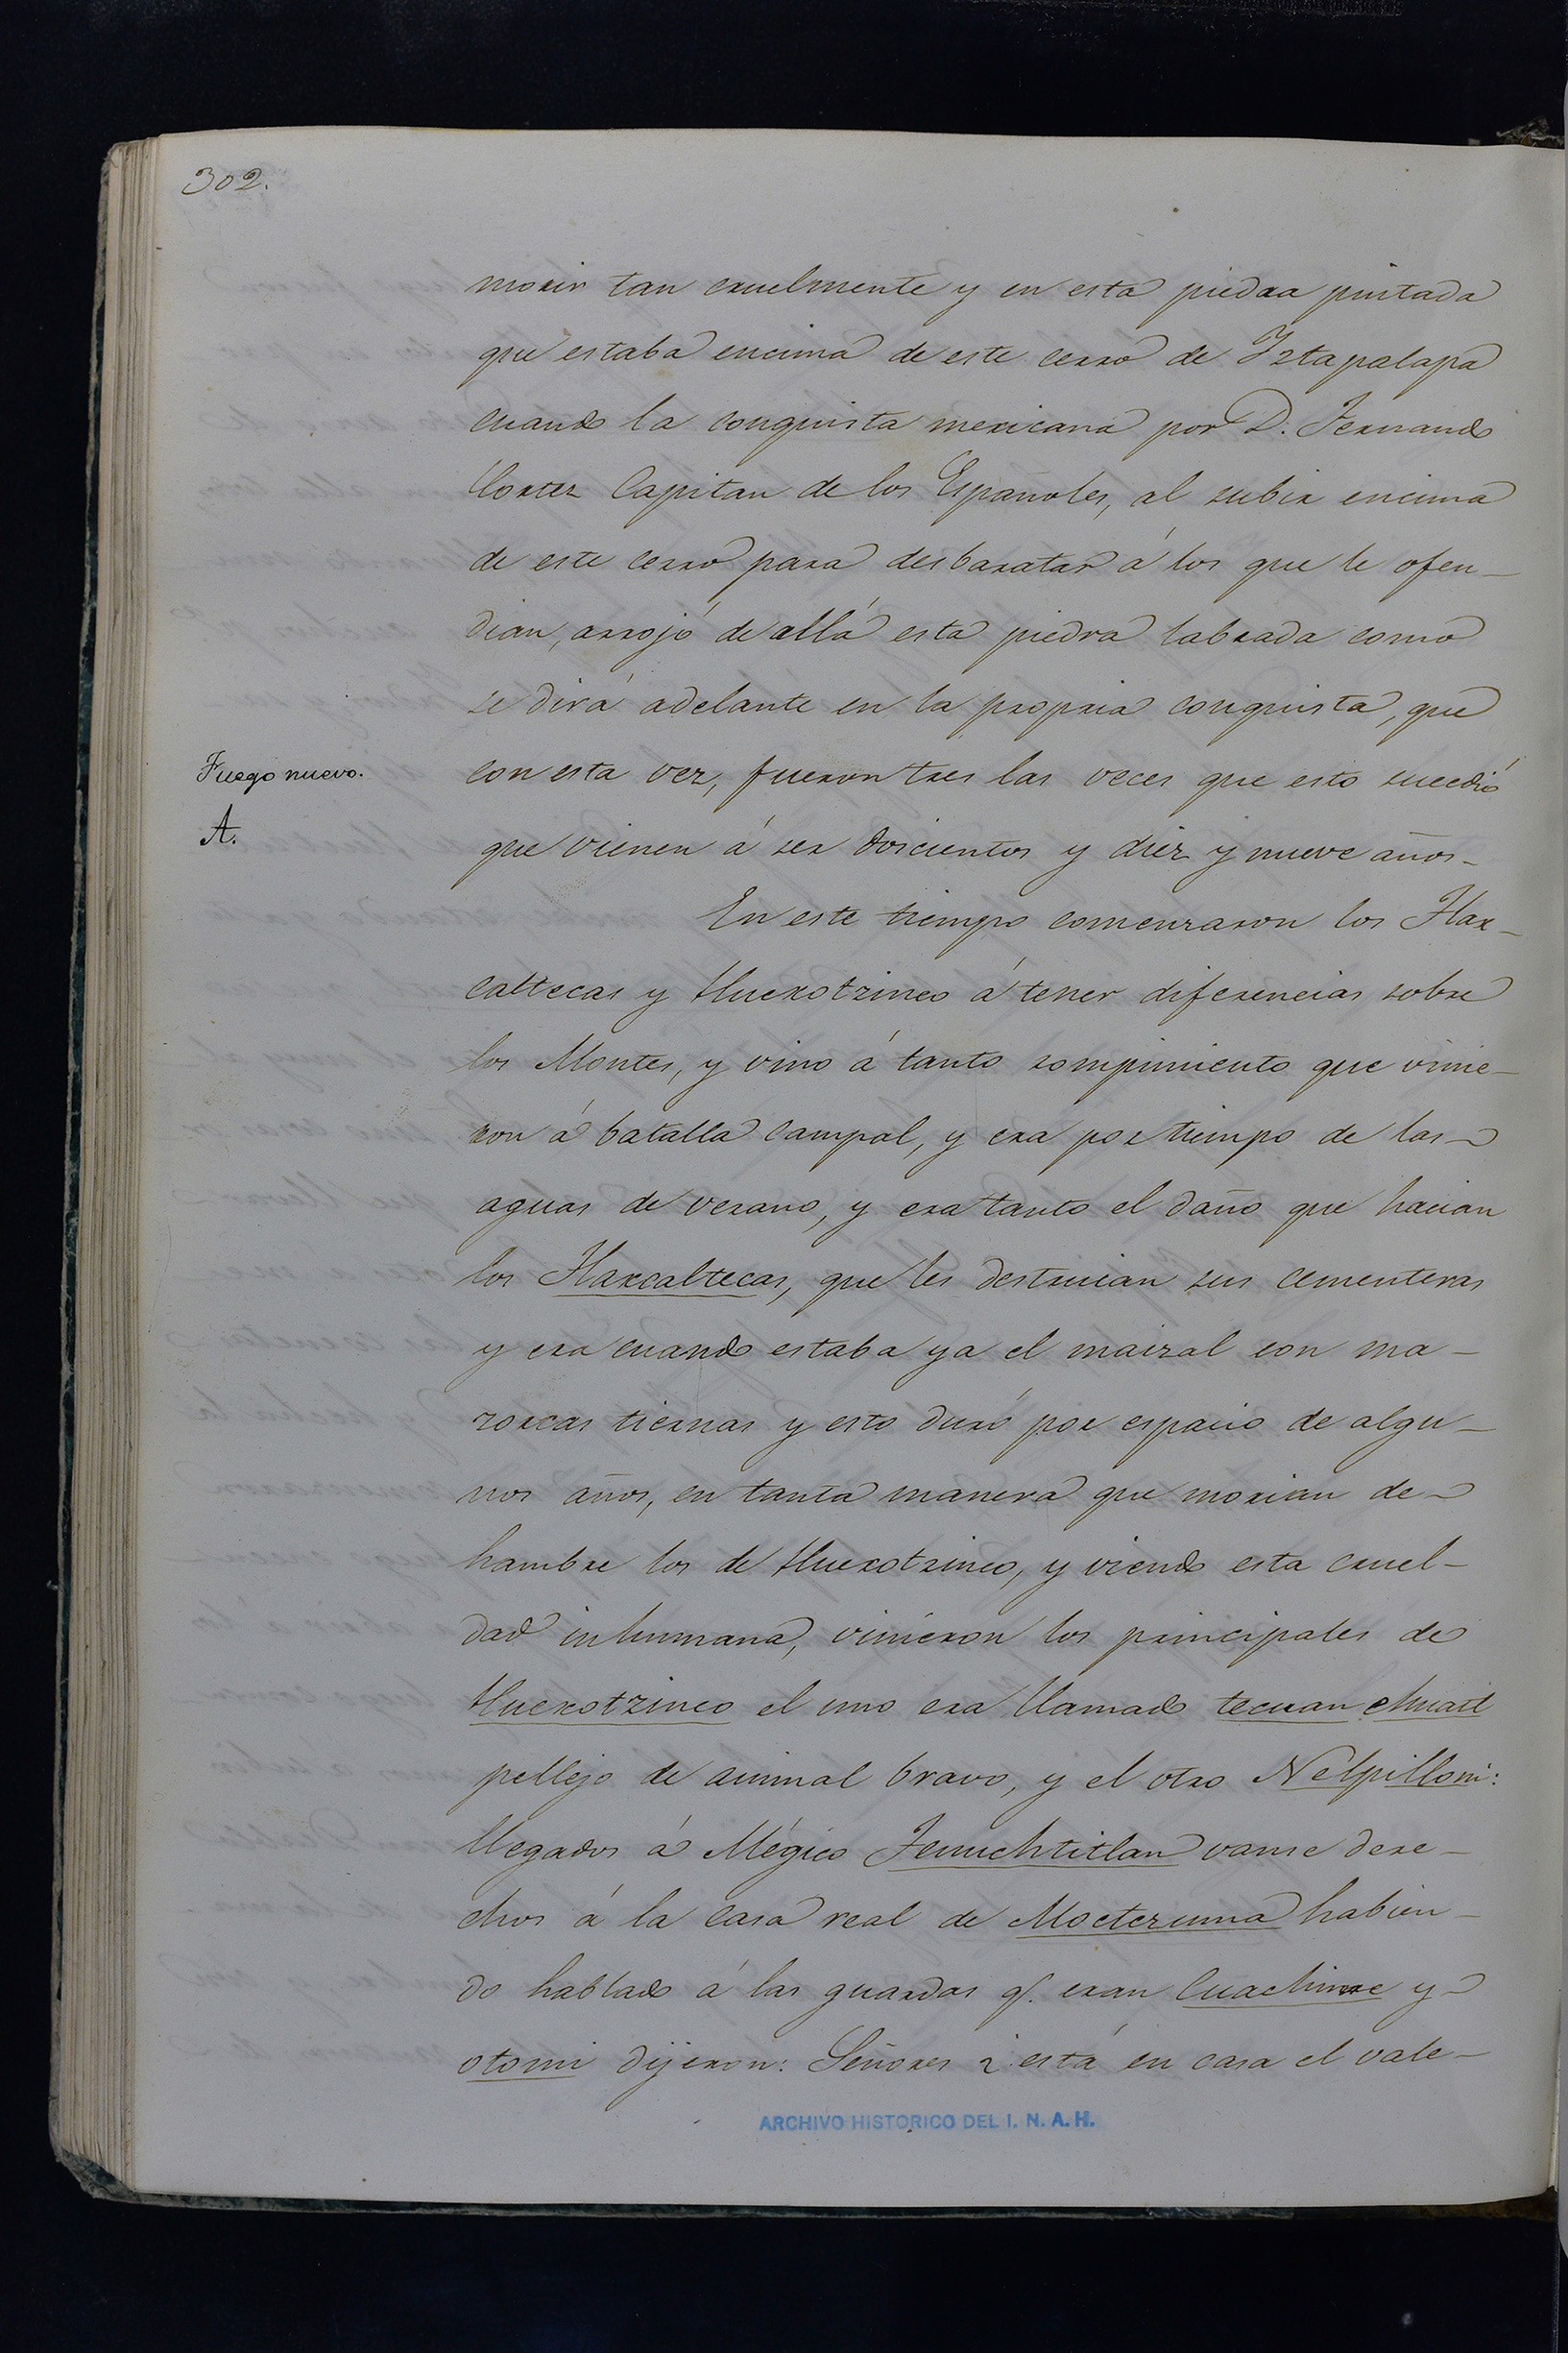 302.
morir tan cruelmente y en esta piedra pintada
que estaba encima de este cerro de Iztapalapa
cuando la conquista mexicana por D. Fernando
Cortez Capitan de los Españoles, al subir encima
de este cerro para desbaratar á los que le ofen-
dian, arrojó de allá esta piedra labrada como
se dirá adelante en la propria conquista, que
Fuego nuevo.
A.
con esta vez, fueron tres las veces que esto sucedió
que vienen á ser doscientos y diez y nueve años-
En este tiempo comenzaron los Tlax-
caltecas y Huexotzinco á tener diferencias sobre
los Montes, y vino á tanto rompimiento que vinie-
ron á batalla campal, y era por tiempo de las-
aguas de verano, y era tanto el daño que hacian
los Tlaxcaltecas, que les destruian sus cementeras
y era cuando estaba ya el maizal con ma-
zorcas tiernas y esto duró por espacio de algu-
nos años, en tanta manera que morian de-
hambre los de Huexotzinco, y viendo esta cruel-
dad inhumana, vinieron los principales de
Huexotzinco el uno era llamado tecuan ehuatl
pellejo de animal bravo, y el otro Nelpilloni:
llegados á Mégico Tenuchtitlan vanse dere-
chos á la casa real de Moctezuma habien-
do hablado á las guardas q. eran Cuachime y-
otomi dijeron: Señores ¿está en casa el vale-
ARCHIVO HISTORICO DEL I. N. A. H.